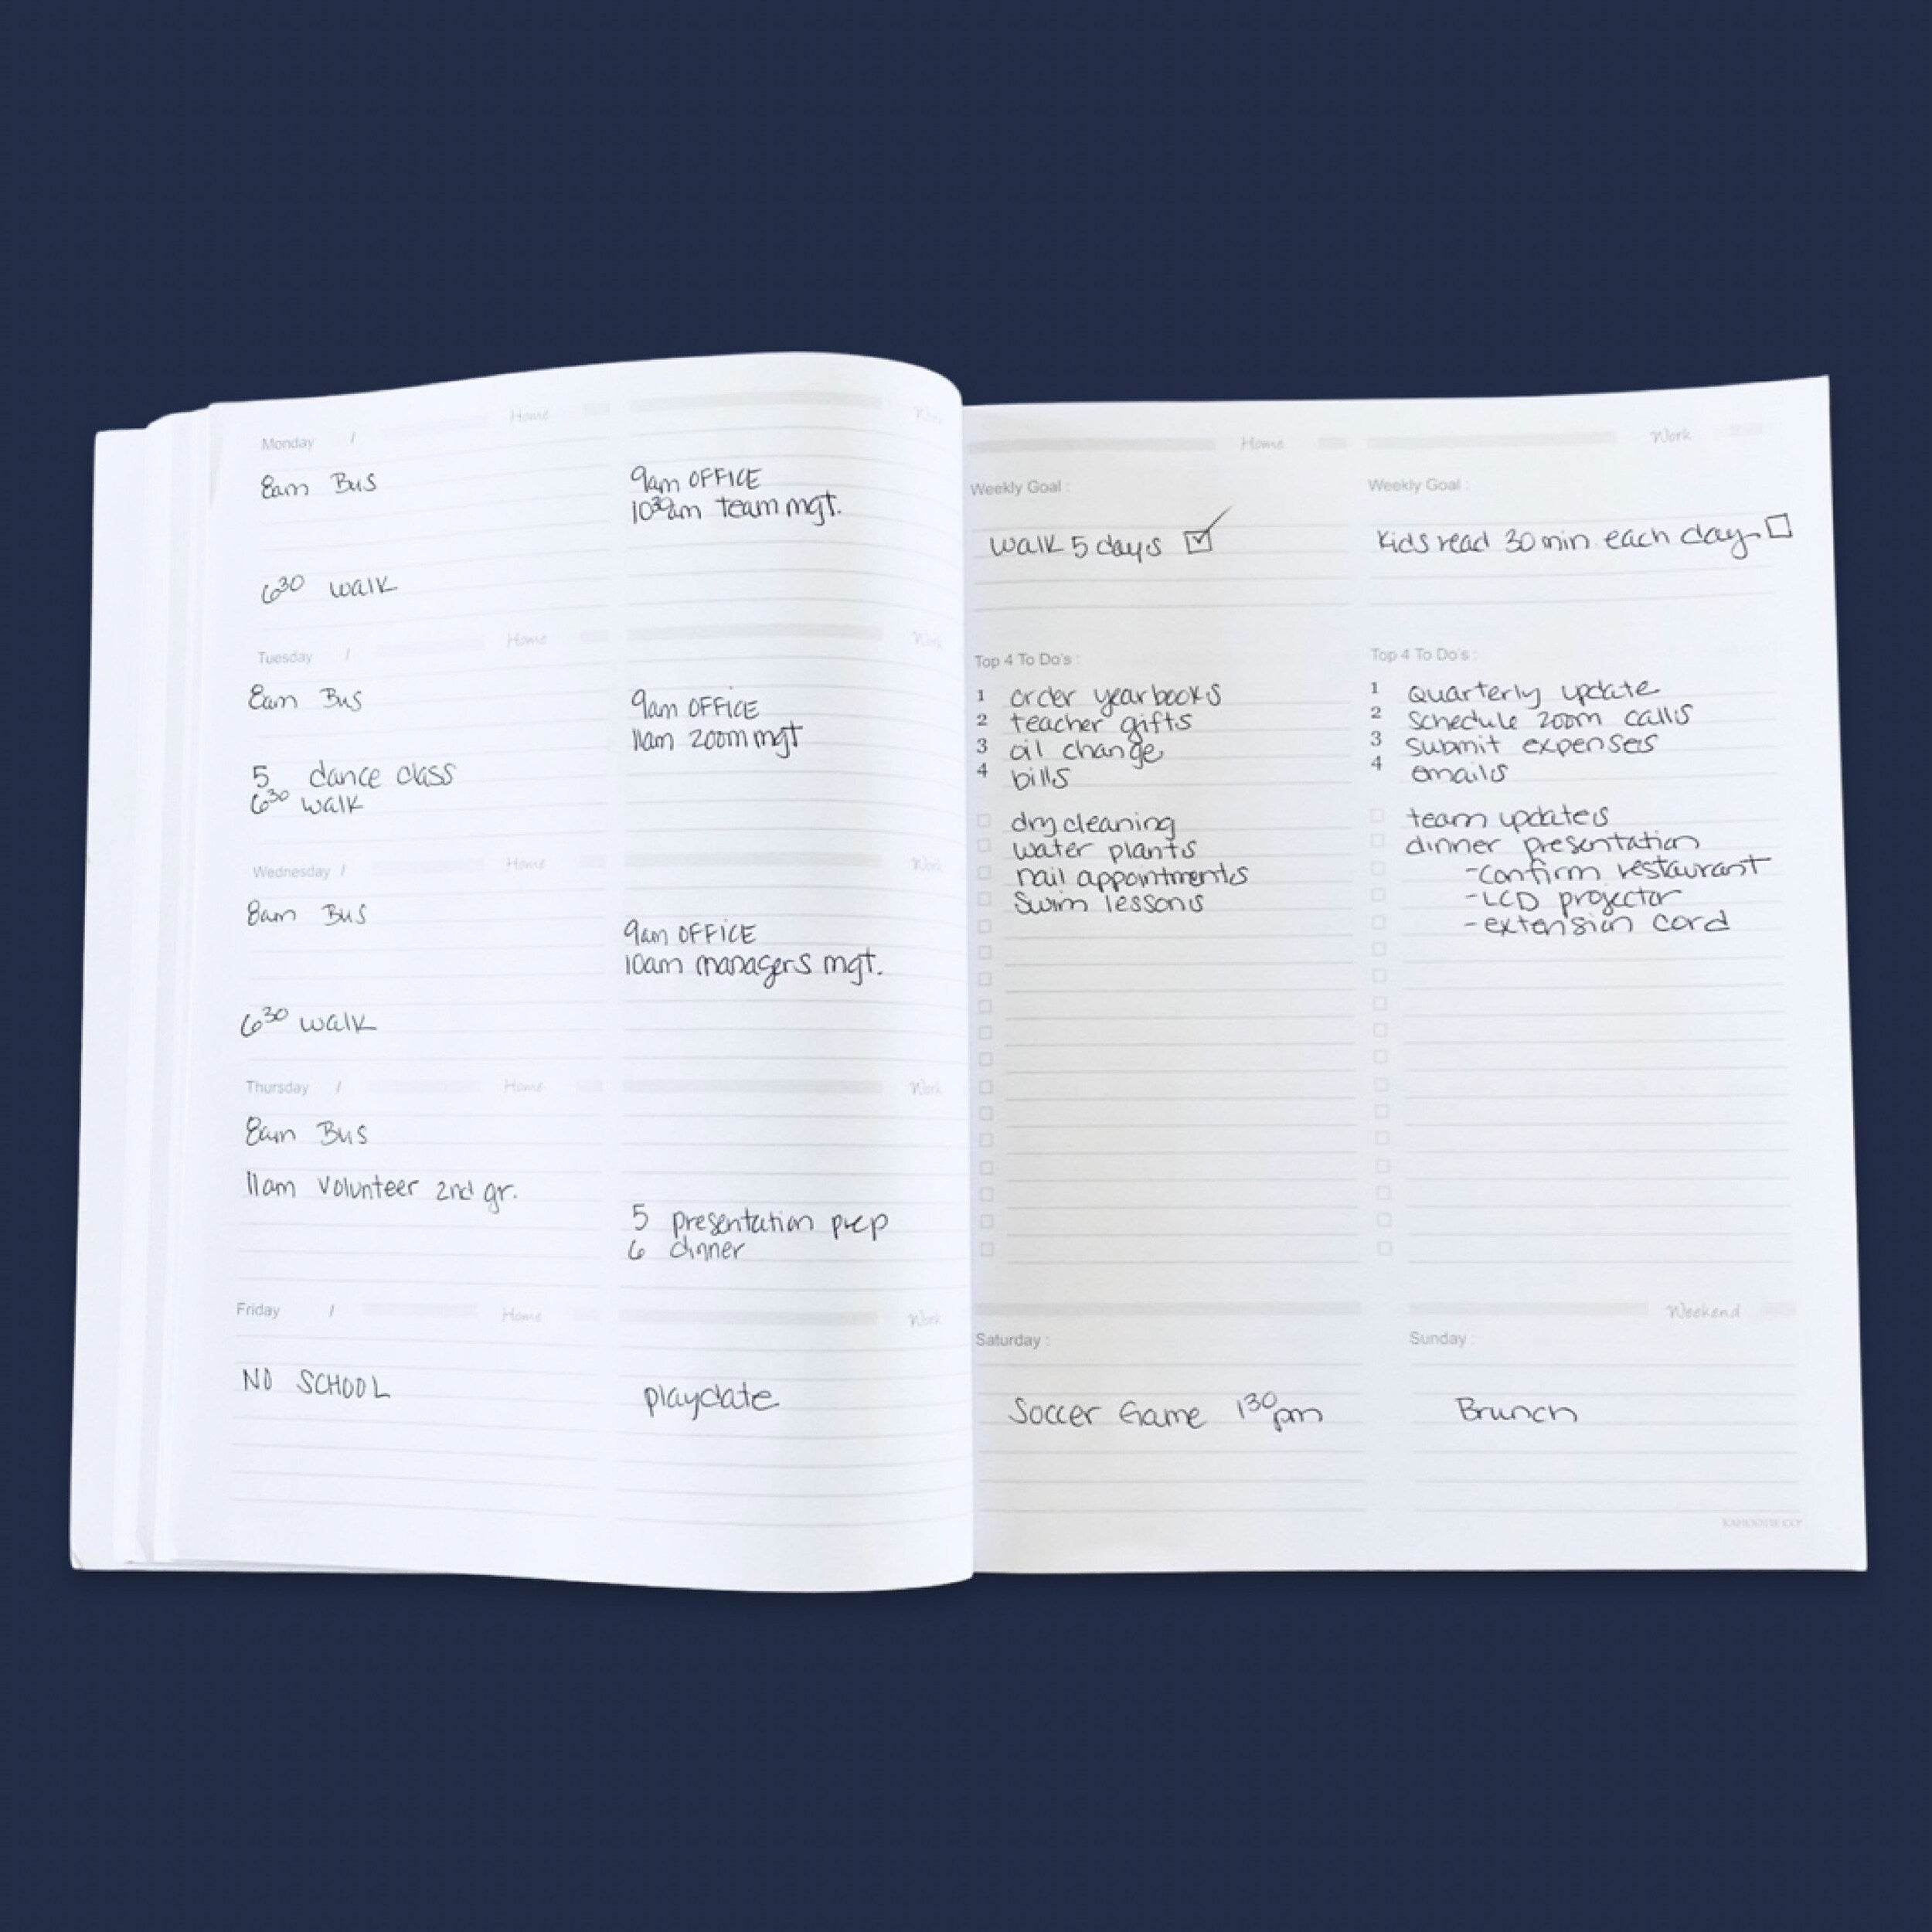 Monday / Home Work
8am Bus
9am OFFICE
10³⁰am team mgt.
6³⁰ walk
Tuesday / Home Work
8am Bus
9am OFFICE
11am zoom mgt
5 dance class
6³⁰ walk
Wednesday / Home Work
8am Bus
9am OFFICE
10am managers mgt.
6³⁰ walk
Thursday / Home Work
8am Bus
11am volunteer 2nd gr.
5 presentation prep
6 dinner
Friday / Home Work
NO SCHOOL
playdate
Home
Weekly Goal :
walk 5 days
Top 4 To Do's :
1 order yearbooks
2 teacher gifts
3 oil change
4 bills
dry cleaning
water plants
nail appointments
swim lessons
Work
Weekly Goal :
Kids read 30 min each day
Top 4 To Do's :
1 Quarterly update
2 schedule zoom calls
3 submit expenses
4 emails
team updates
dinner presentation
-confirm restaurant
-LCD projector
-extension cord
Weekend
Saturday :
Soccer Game 1³⁰pm
Sunday :
Brunch
KAHOOTIE CO